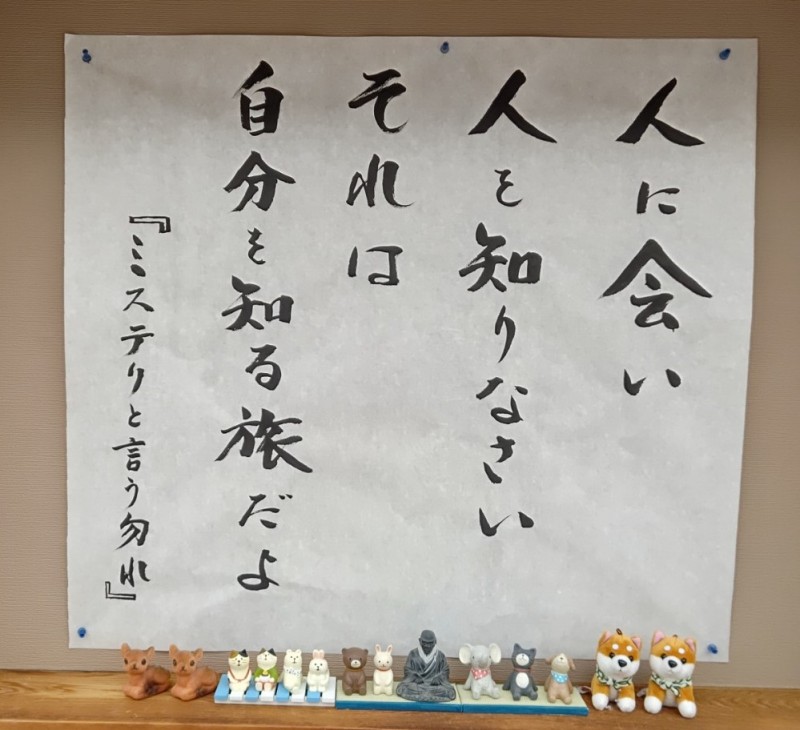 人に会い
人を知りなさい
それは
自分を知る旅だよ
『ミステリと言う勿れ』